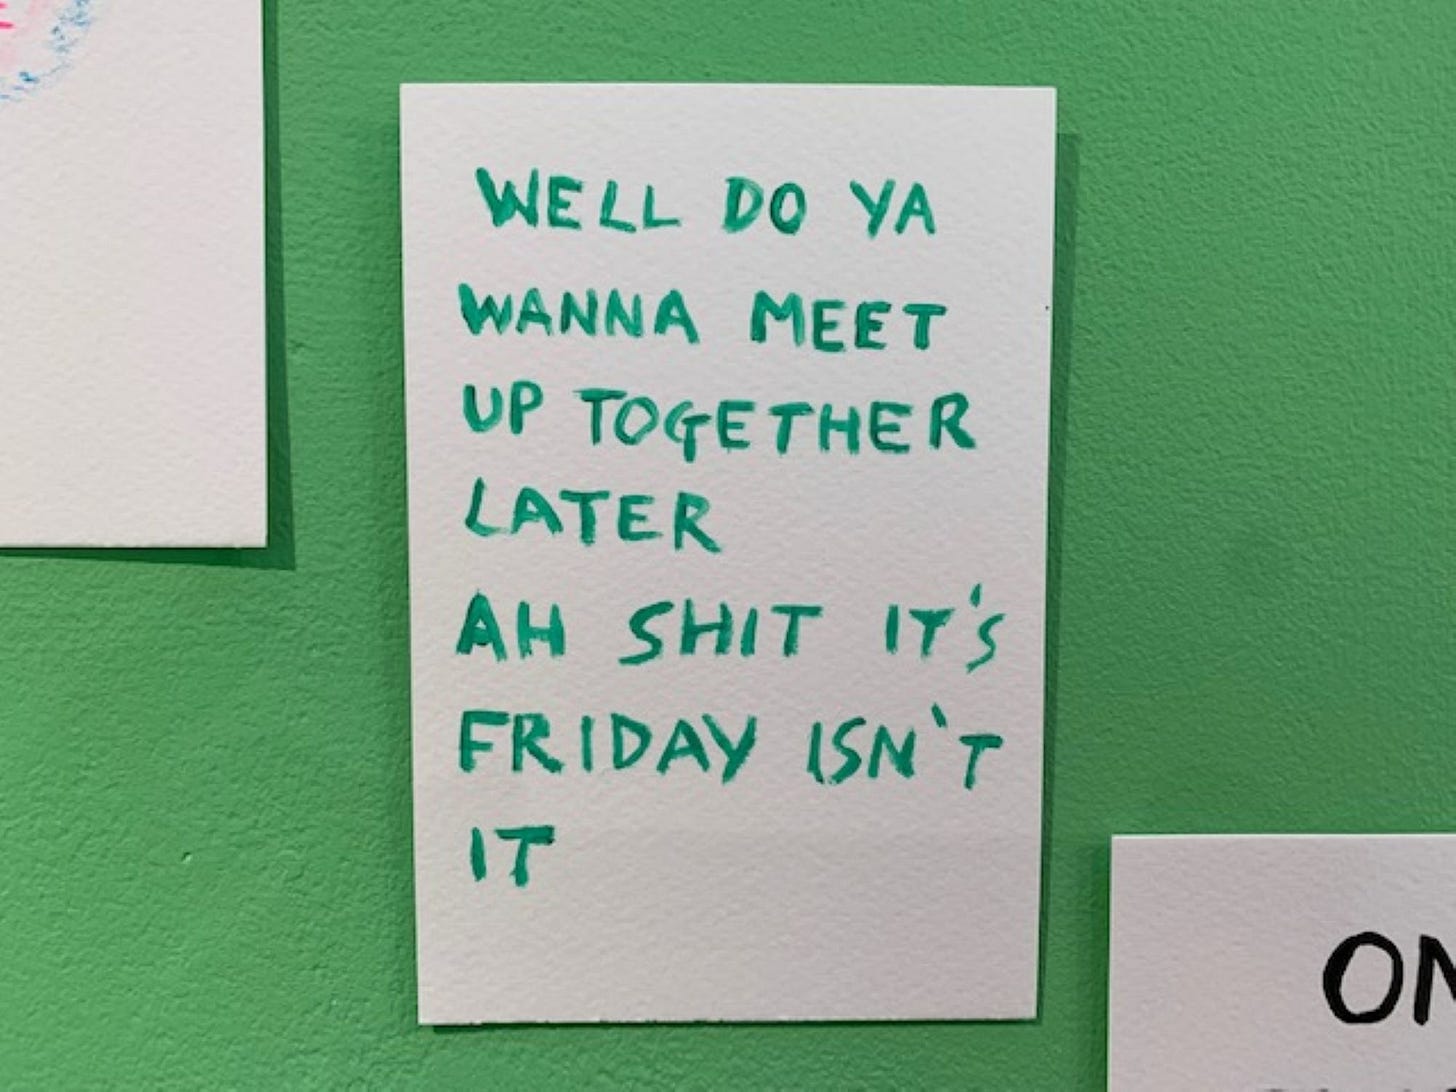 WELL DO YA
WANNA MEET
UP TOGETHER
LATER
AH SHIT IT'S
FRIDAY ISN'T
IT